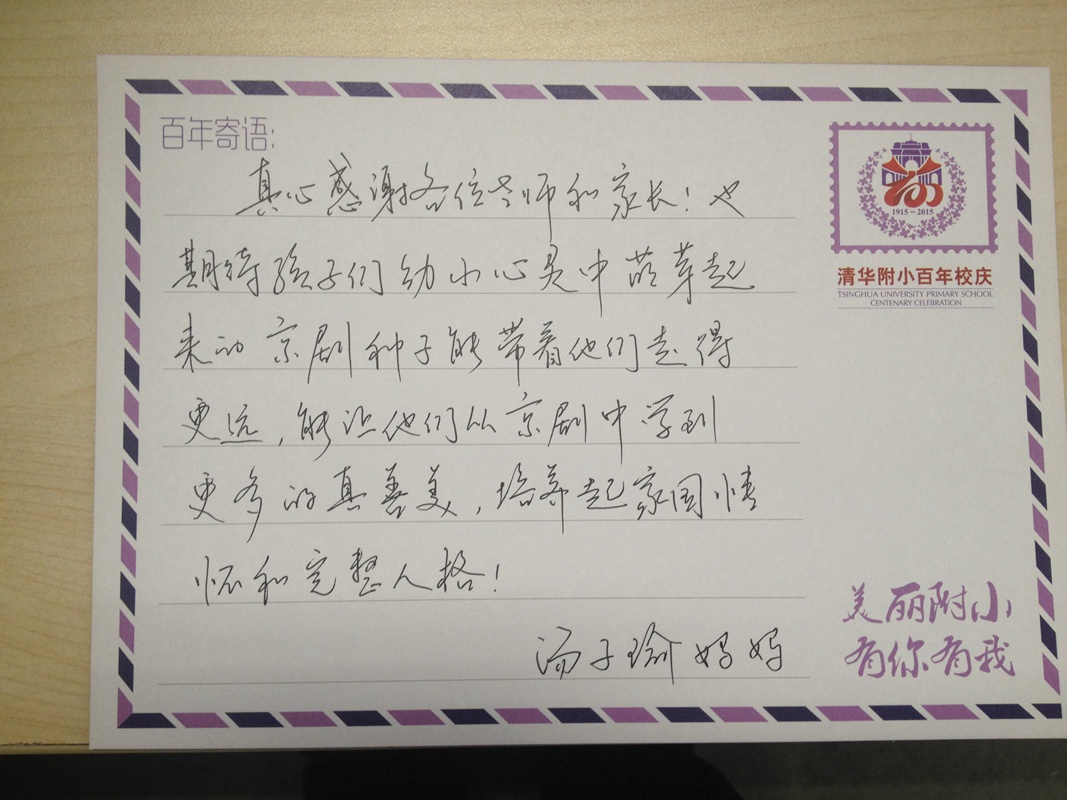 百年寄语:
真心感谢各位老师和家长！也
期待孩子们幼小心灵中萌芽起
来的京剧种子能带着他们走得
更远，能让他们从京剧中学到
更多的真善美，培养起家国情
怀和完整人格！
汤子瑜妈妈
100
1915-2015
清华附小百年校庆
TSINGHUA UNIVERSITY PRIMARY SCHOOL
CENTENARY CELEBRATION
美丽附小
有你有我